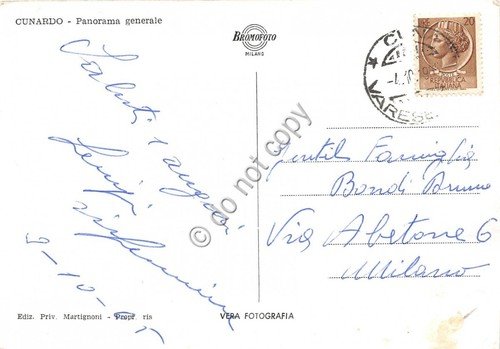 CUNARDO - Panorama generale
BROMOFOTO
MILANO
20
VARESE
Saluti e auguri
9-10-65
Gentile Famiglia
Bondi Bruno
Via Abetone 6
Milano
Ediz. Priv. Martignoni - Propr. ris
VERA FOTOGRAFIA
© do not copy